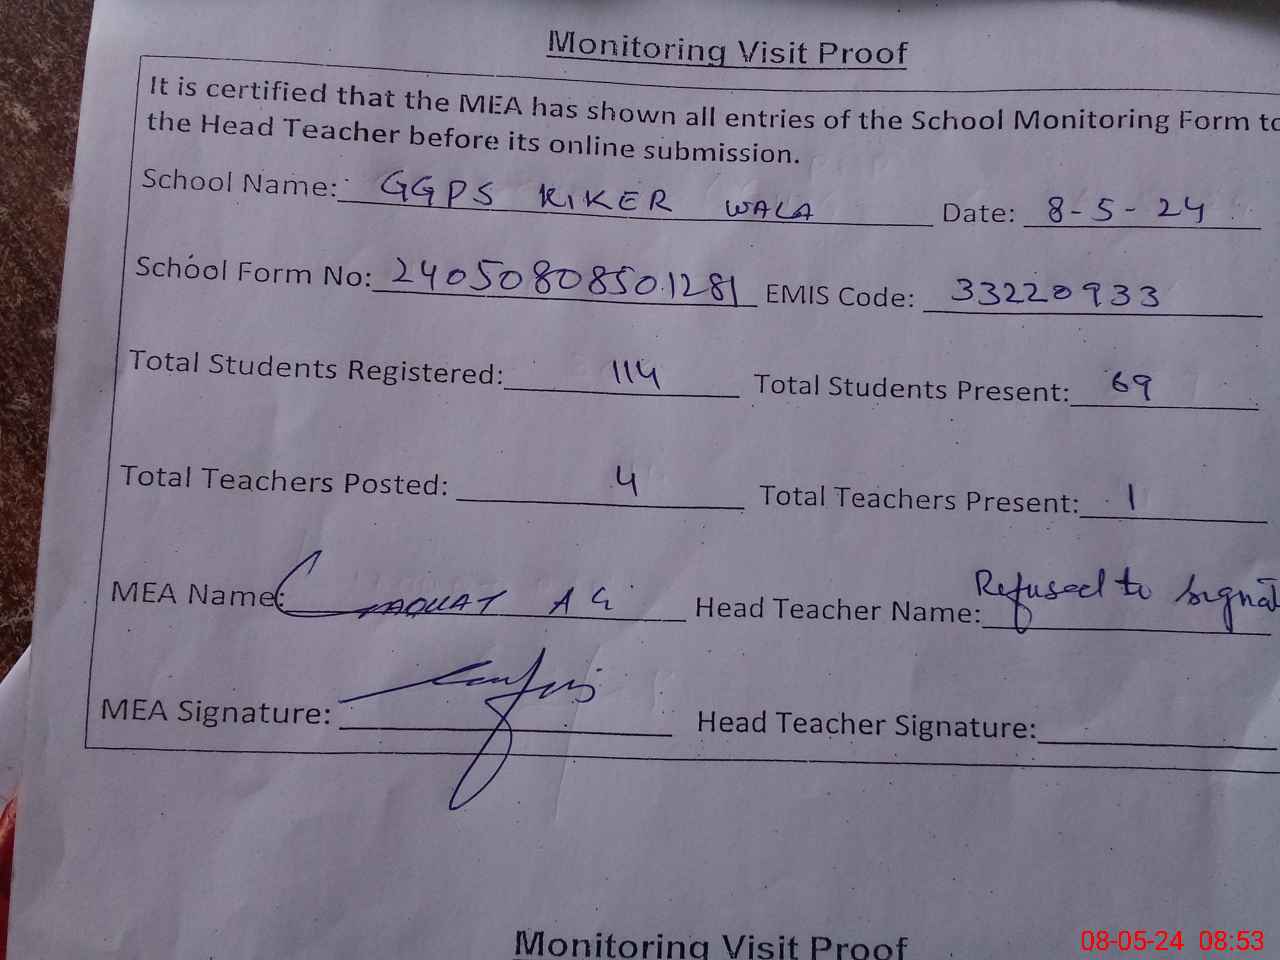 Monitoring Visit Proof
It is certified that the MEA has shown all entries of the School Monitoring Form to
the Head Teacher before its online submission.
School Name: GGPS KIKER WALA Date: 8-5-24
School Form No: 24050808501281 EMIS Code: 33220933
Total Students Registered: 114 Total Students Present: 69
Total Teachers Posted: 4 Total Teachers Present: 1
MEA Name: Head Teacher Name: Refused to signat
MEA Signature: Head Teacher Signature:
Monitoring Visit Proof
08-05-24 08:53